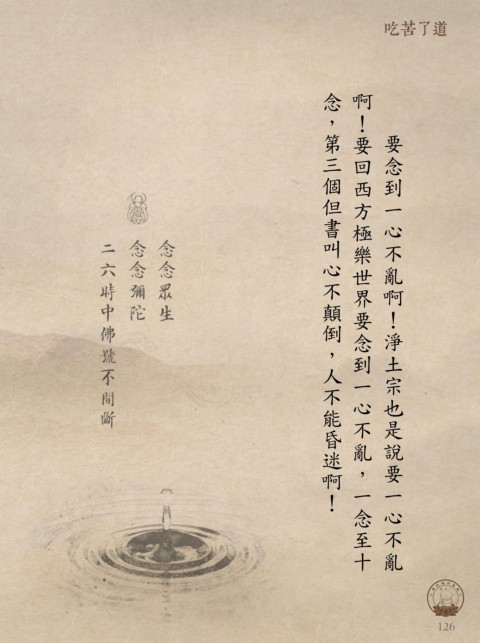 吃苦了道
要念到一心不亂啊！淨土宗也是說要一心不亂
啊！要回西方極樂世界要念到一心不亂，一念至十
念，第三個但書叫心不顛倒，人不能昏迷啊！
念念眾生
念念彌陀
二六時中佛號不間斷
126